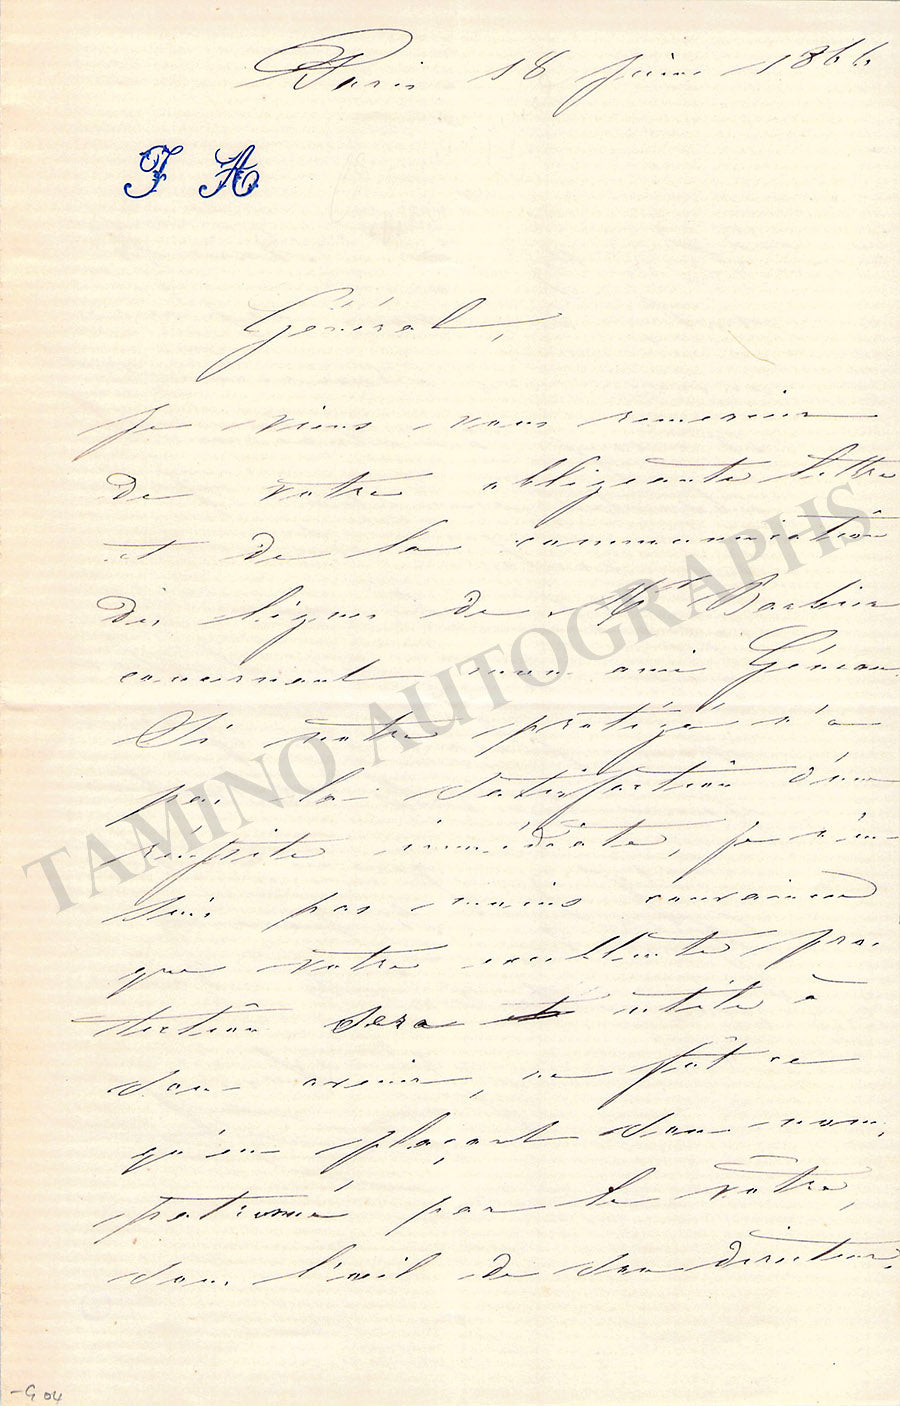 Paris 18 juin 1866
J A
Général,
Je viens vous remercier
de votre obligeante lettre
et de la communication
des lignes de Mr Barbier
concernant mon ami
Si votre protégé n'a
pas la satisfaction d'une
réussite immédiate, je n'en
suis pas moins convaincu
que votre excellente pro-
tection sera utile à
son avenir, ne fût ce
qu'en plaçant son nom,
patronné par le vôtre,
sous l'œil de son directeur.
TAMINO AUTOGRAPHS
-G 04